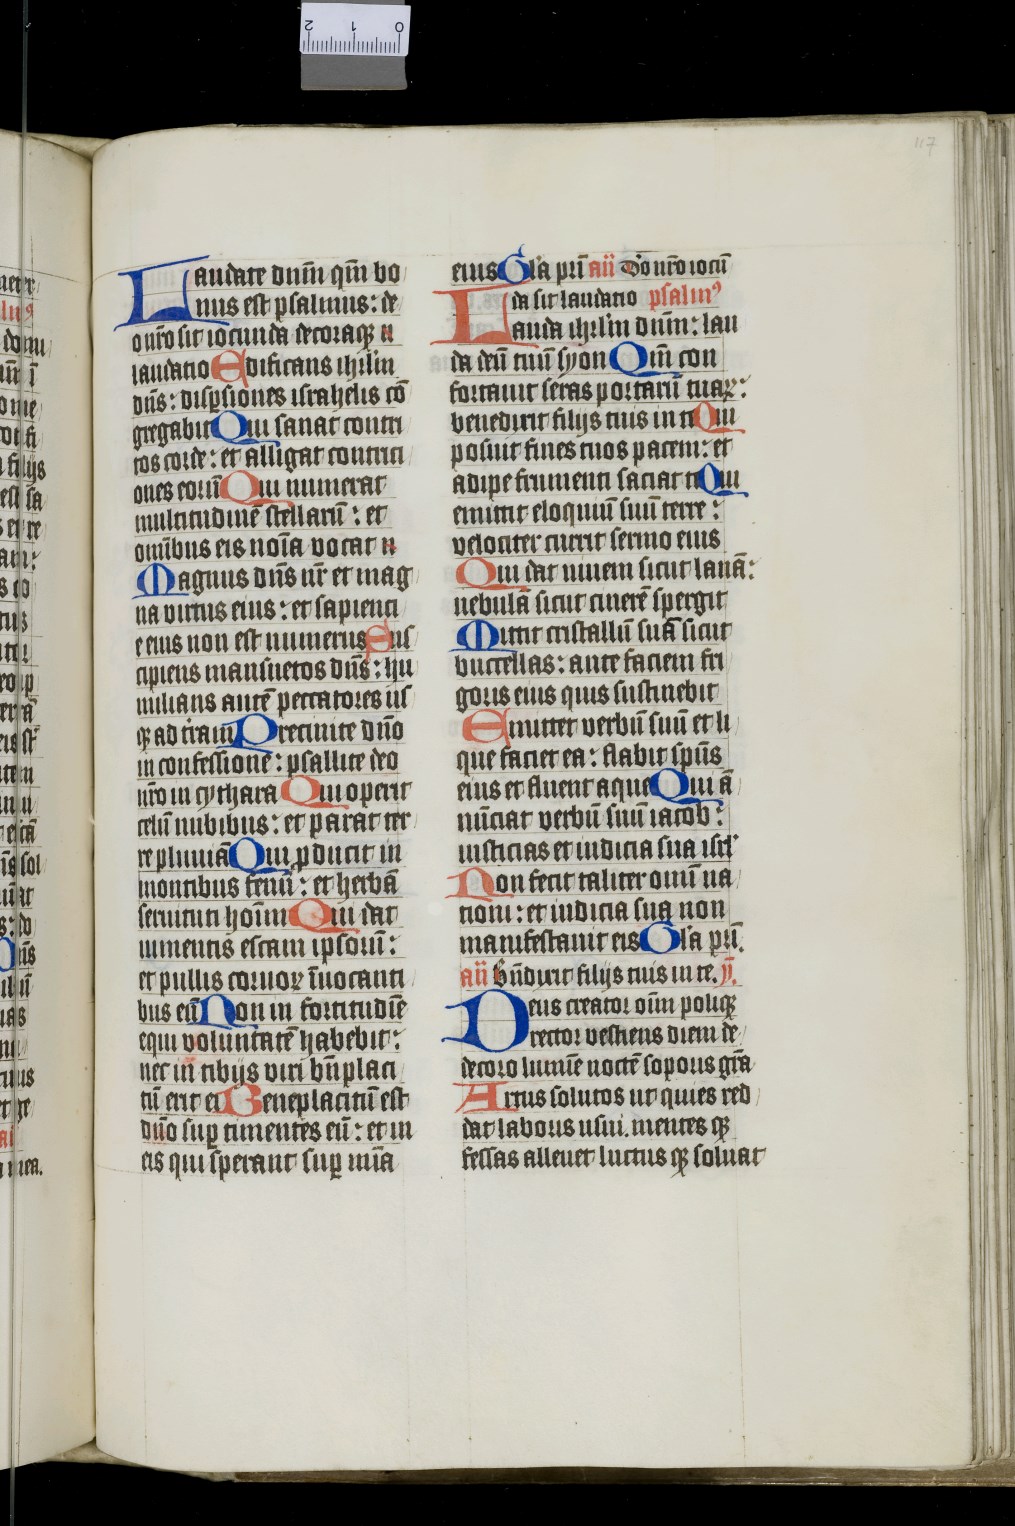 117
Laudate dnm̄ qm̄ bo
nus est psalmus: de
o nr̄o sit iocunda decoraq
laudatio Edificans ihrlm̄
dn̄s: disp̱siones israhelis cō
gregabit Qui sanat contri
tos corde: et alligat contrici
ones eorū Qui numerat
multitudinē stellarū: et
omībus eis noīa vocat
Magnus dn̄s nr̄ et mag
na virtus eius: et sapienci
e eius non est numerus Sus
cipiens mansuetos dn̄s: hu
milians autē peccatores us
q ad trām Precinite dn̄o
in confessione: psallite deo
nr̄o in cythara Qui operit
celū nubibus: et parat ter
re pluuiā Qui ꝓducit in
montibus fenū: et herbā
seruituti hoīm Qui dat
iumentis escam ipsorū:
et pullis coruoꝝ īuocanti
bus eū Non in fortitudīe
equi voluntatē habebit:
nec in tibijs viri bn̄placi
tū erit ei Beneplacitū est
dn̄o suꝑ timentes eū: et in
eis qui sperant suꝑ mīa
eius Gl'a pr̄i an̄ Deo nr̄o iocū
da sit laudatio psalmꝰ
Lauda ihrlm̄ dnm̄: lau
da deū tuū syon Qm̄ con
fortauit seras portarū tuaꝝ:
benedixit filijs tuis in te Qui
posuit fines tuos pacem: et
adipe frumenti saciat te Qui
emittit eloquiū suū terre:
velociter currit sermo eius
Qui dat niuem sicut lanā:
nebulā sicut cinerē spergit
Mittit cristallū suā sicut
buccellas: ante faciem fri
goris eius quis sustinebit
Emittet verbū suū et li
que faciet ea: flabit spūs
eius et fluent aque Qui ā
nūciat verbū suū iacob:
iusticias et iudicia sua isrl'
Non fecit taliter omī na
tioni: et iudicia sua non
manifestauit eis Gl'a pr̄i.
an̄ Bn̄dixit filijs tuis in te. ym̄.
Deus creator om̄ poliq
Rector vestiens diem de
decoro lumīe noctē soporis gr̄a
Artus solutos ut quies red
dat laboris usui. mentes q
fessas alleuet luctus q soluat
0 1 2